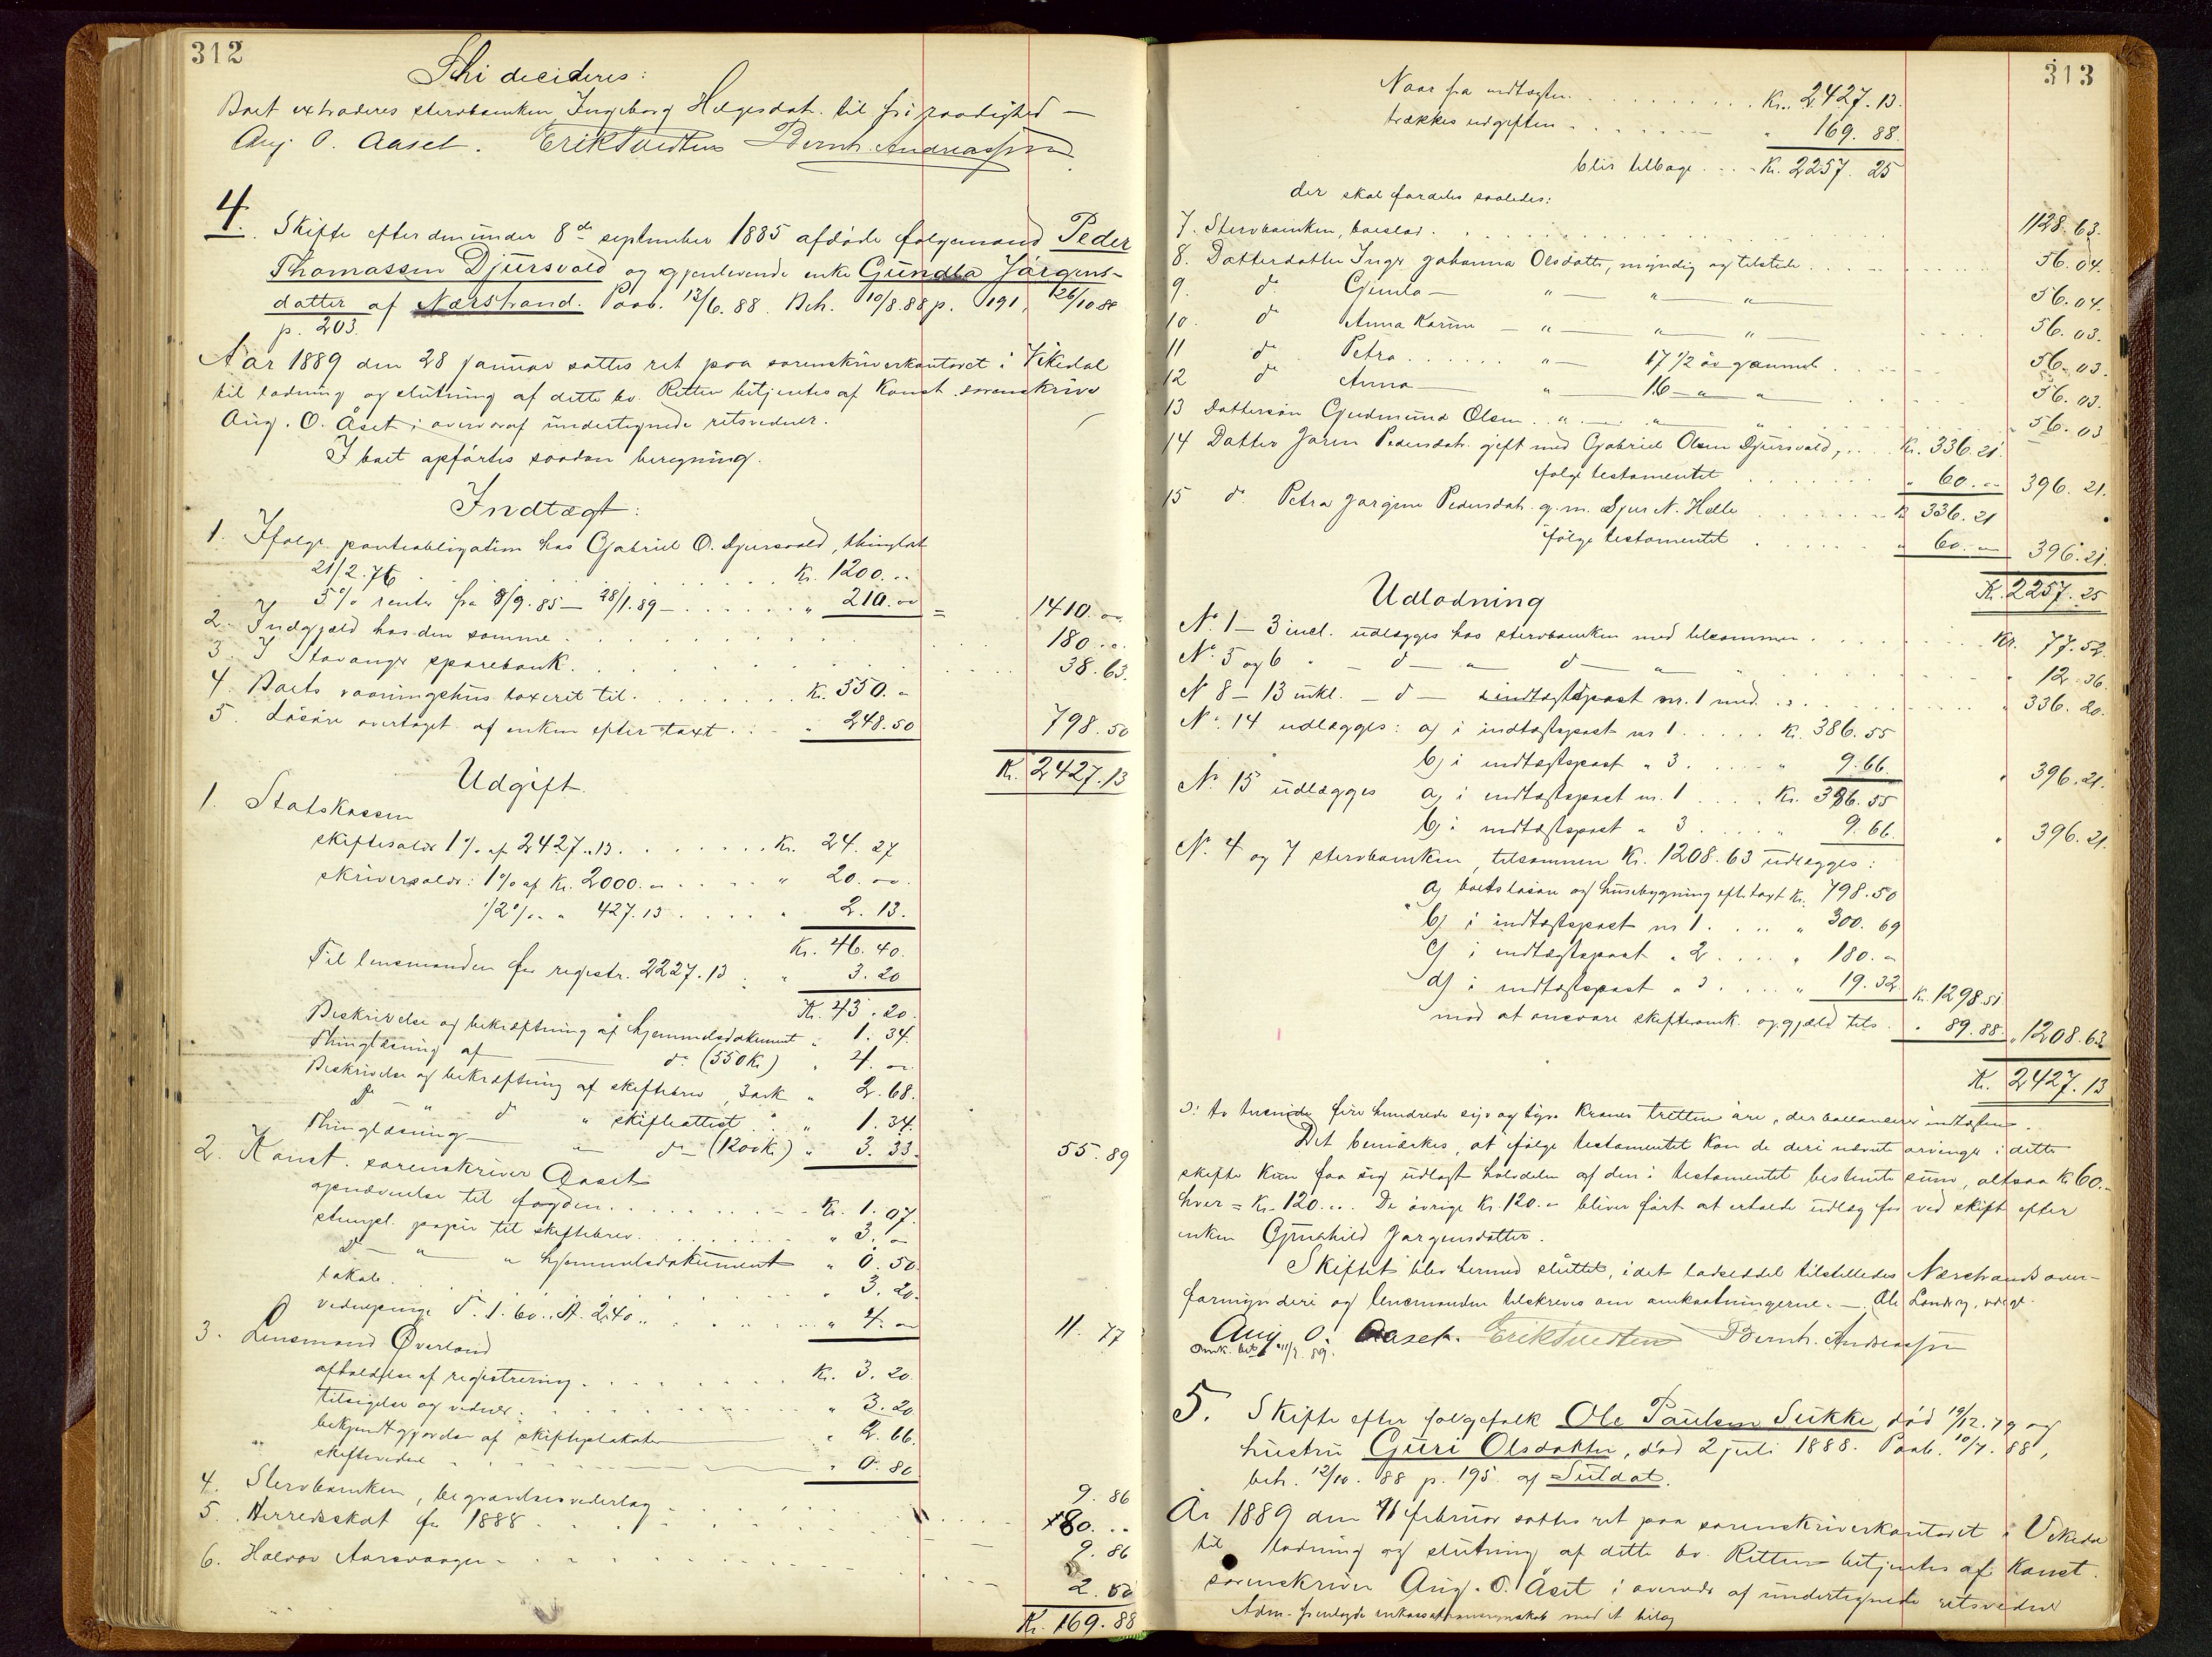 312
Thi decideres:
Boet extraderes stervboenken Ingeborg Helgesdat. til fri raadighed —
Aug. O. Aaset. Erik Tvedten Bernh. Andreassen
4. Skifte efter den under 8de september 1885 afdøde følgemand Peder
Thomassen Djursvold og gjenlevende enke Gundla Jørgens-
datter af Nærstrand. Paab. 12/6.88. Beh. 10/8.88 p. 191, 26/10 88
p. 203.
Aar 1889 den 28 januar sattes ret paa sorenskriverkontoret i Vikedal
til lodning og slutning af dette bo. Retten betjentes af Konst. sorenskriver
Aug. O. Åset i overvær af undertegnede retsvidner.
I boet opførtes saadan beregning.
Indtægt:
1. Ifølge panteobligation hos Gabriel O. Djursvold, thinglæst
21/2.76 Kr. 1200...
5% renter fra 8/9.85 — 28/1.89 — " 210.00 = 1410.00
2. Indgjæld hos den samme 180...
3. I Stavanger sparebank. 38.63.
4. Boets vaaningshus taxeret til. Kr. 550.
5. Løsøre overtaget af enken efter taxt. " 248.50 798.50
Kr. 2427.13
Udgift.
1. Statskassen
skiftesalær 1% af 2427.13. Kr. 24.27
skriversalær: 1% af Kr. 2000. " 20.00.
1/2% " 427.13 " 2.13.
Kr. 46.40.
Til lensmanden for registr. 2227.13 " 3.20
Kr. 43.20.
Beskrivelse og bekræftning af hjemmelsdokument " 1.34.
Thinglæsning af do (550 Kr) " 4.
Beskrivelse og bekræftning af skiftebrev, 3 ark " 2.68.
do " do " skifteattest " 1.34.
Thinglæsning " do (1200 Kr.) " 3.33. 55.89
2. Konst. sorenskriver Aaset
opnævnelse til fogden Kr. 1.07.
stempl. papir til skiftebrev " 3.
do " " hjemmelsdokument " 0.50
lokale. " 3.20.
vidnepenge T. 1.60, A. 2.40 " 4. 11.77
3. Lensmand Øverland
afholdelse af registrering Kr. 3.20.
tilsigelse og vidner. " 3.20
bekjentgjørelse af skifteplakater " 2.66.
skiftevidner " 0.80
9.86
4. Stervboenken, begravelsesvederlag 80...
5. Herredsskat for 1888 9.86
6. Halvor Aarsvaager 2.50
Kr. 169.88
313
Naar fra indtægten Kr. 2427.13.
trækkes udgiften " 169.88.
blir tilbage Kr. 2257.25
der skal fordeles saaledes:
7. Stervboenken, boeslod. 1128.63.
8. Datterdatter Inger Johanna Olsdatter, myndig og tilstede 56.04.
9. do Gunla — " — " — " 56.04.
10. do Anna Karine — " — " — " 56.03.
11 do Petra " — 17 1/2 år gammel 56.03.
12 do Anna — " 16 — " " 56.03.
13 Dattersøn Gudmund Olsen " — " " 56.03
14 Datter Joren Pedersdat. gift med Gabriel Olsen Djursvold, Kr. 336.21.
følge testamentet " 60. 396.21.
15 do Petra Jørgine Pedersdat. g.m. Sjur N. Helle Kr. 336.21
følge testamentet " 60. 396.21.
Kr. 2257.25
Udlodning
No. 1 — 3 incl. udlægges hos stervboenken med tilsammen Kr. 77.52.
No. 5 og 6 " — do — " do — " 12.36.
N 8 — 13 inkl. — do — i indtægtspost nr. 1 med " 336.20.
No. 14 udlægges: a) i indtægtspost nr 1 Kr. 386.55
b) i indtægtspost " 3 " 9.66. " 396.21.
No. 15 udlægges a) i indtægtspost nr. 1 Kr. 386.55
b) i indtægtspost " 3 " 9.66. " 396.21.
No. 4 og 7 stervboenken, tilsammen Kr. 1208.63 udlægges:
a) boets løsøre og husebygning eft. taxt Kr. 798.50
b) i indtægtspost nr 1 " 300.69
c) i indtægtspost " 2 " 180.
d) i indtægtspost " 3 " 19.32 Kr. 1298.51
mod at ansvare skifteomk. og gjæld tils. " 89.88. " 1208.63
Kr. 2427.13
ɔ: to tusinde fire hundrede syv og tyve Kroner tretten øre, der ballancerer indtægten.
Det bemærkes, at følge testamentet kan de deri nævnte arvinger i dette
skifte kun faa sig udlagt halvdelen af den i testamentet bestemte sum, altsaa Kr 60.
hver = Kr. 120... De øvrige Kr. 120. bliver først at erholde udlæg for ved skift efter
enken Gunhild Jørgensdatter.
Skiftet blev hermed sluttet, idet lodseddel tilstilledes Nærstrands over-
formynderi og lensmanden tilskreves om omkostningerne. —
Aug. O. Aaset. Erik Tvedten Bernh. Andreassen
5. Skifte efter følgefolk Ole Paulsen Sukke, død 19/12.79 og
hustru Guri Olsdatter, død 2 juli 1888. Paab. 10/7.88,
beh. 12/10.88 p. 195 af Suldal.
År 1889 den 11 februar sattes ret paa sorenskriverkontoret i Vikedal
til lodning og slutning af dette bo. Retten betjentes af Konst.
sorenskriver Aug. O. Åset i overvær af undertegnede retsvidner
Adm. fremlagde inkassationsregnskab med et bilag